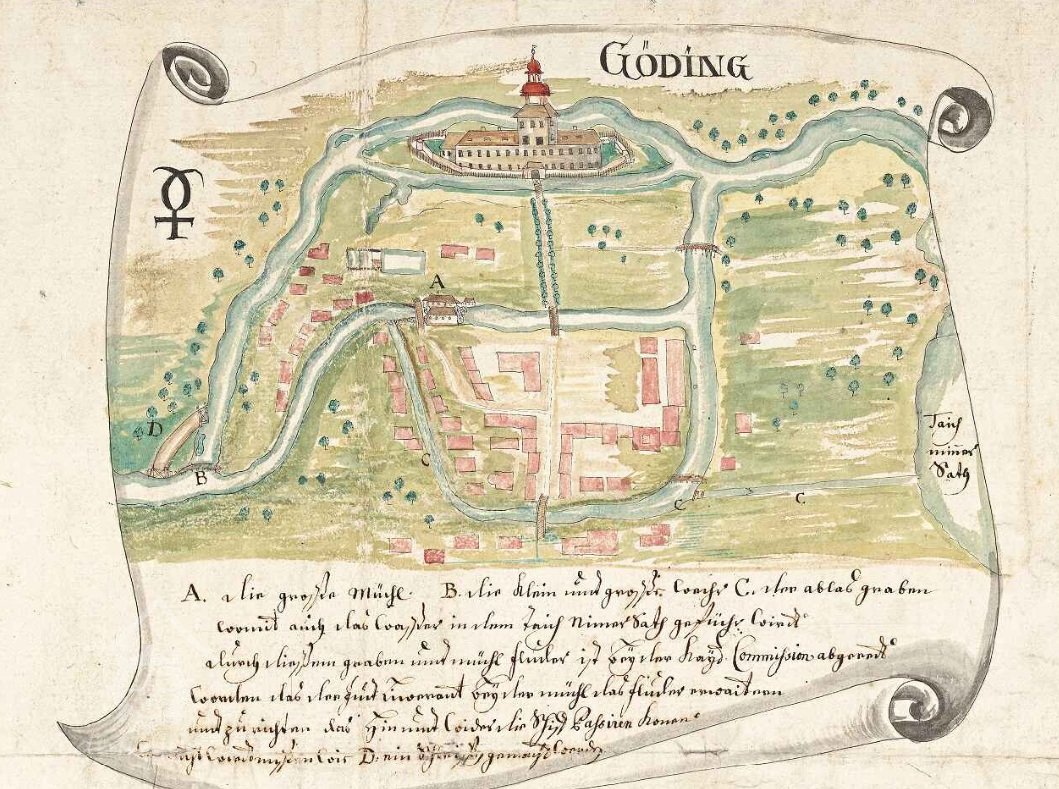 GÖDING
A
D
B
C
C
C
Taich
nimer
Sath
A. die grosse Mühl. B. die Klein und grosse wehr C. der ablas graben
wormit auch das wasser in dem Taich Nimer Sath geführt wird
durch diessem graben und mühl fluder ist bey der Kayß. Commission abgeredt
worden das der bey der mühl das fluder erwaitern
und zu richten das hin und wider die Schiff Passiren könen
D. ein gemacht werden